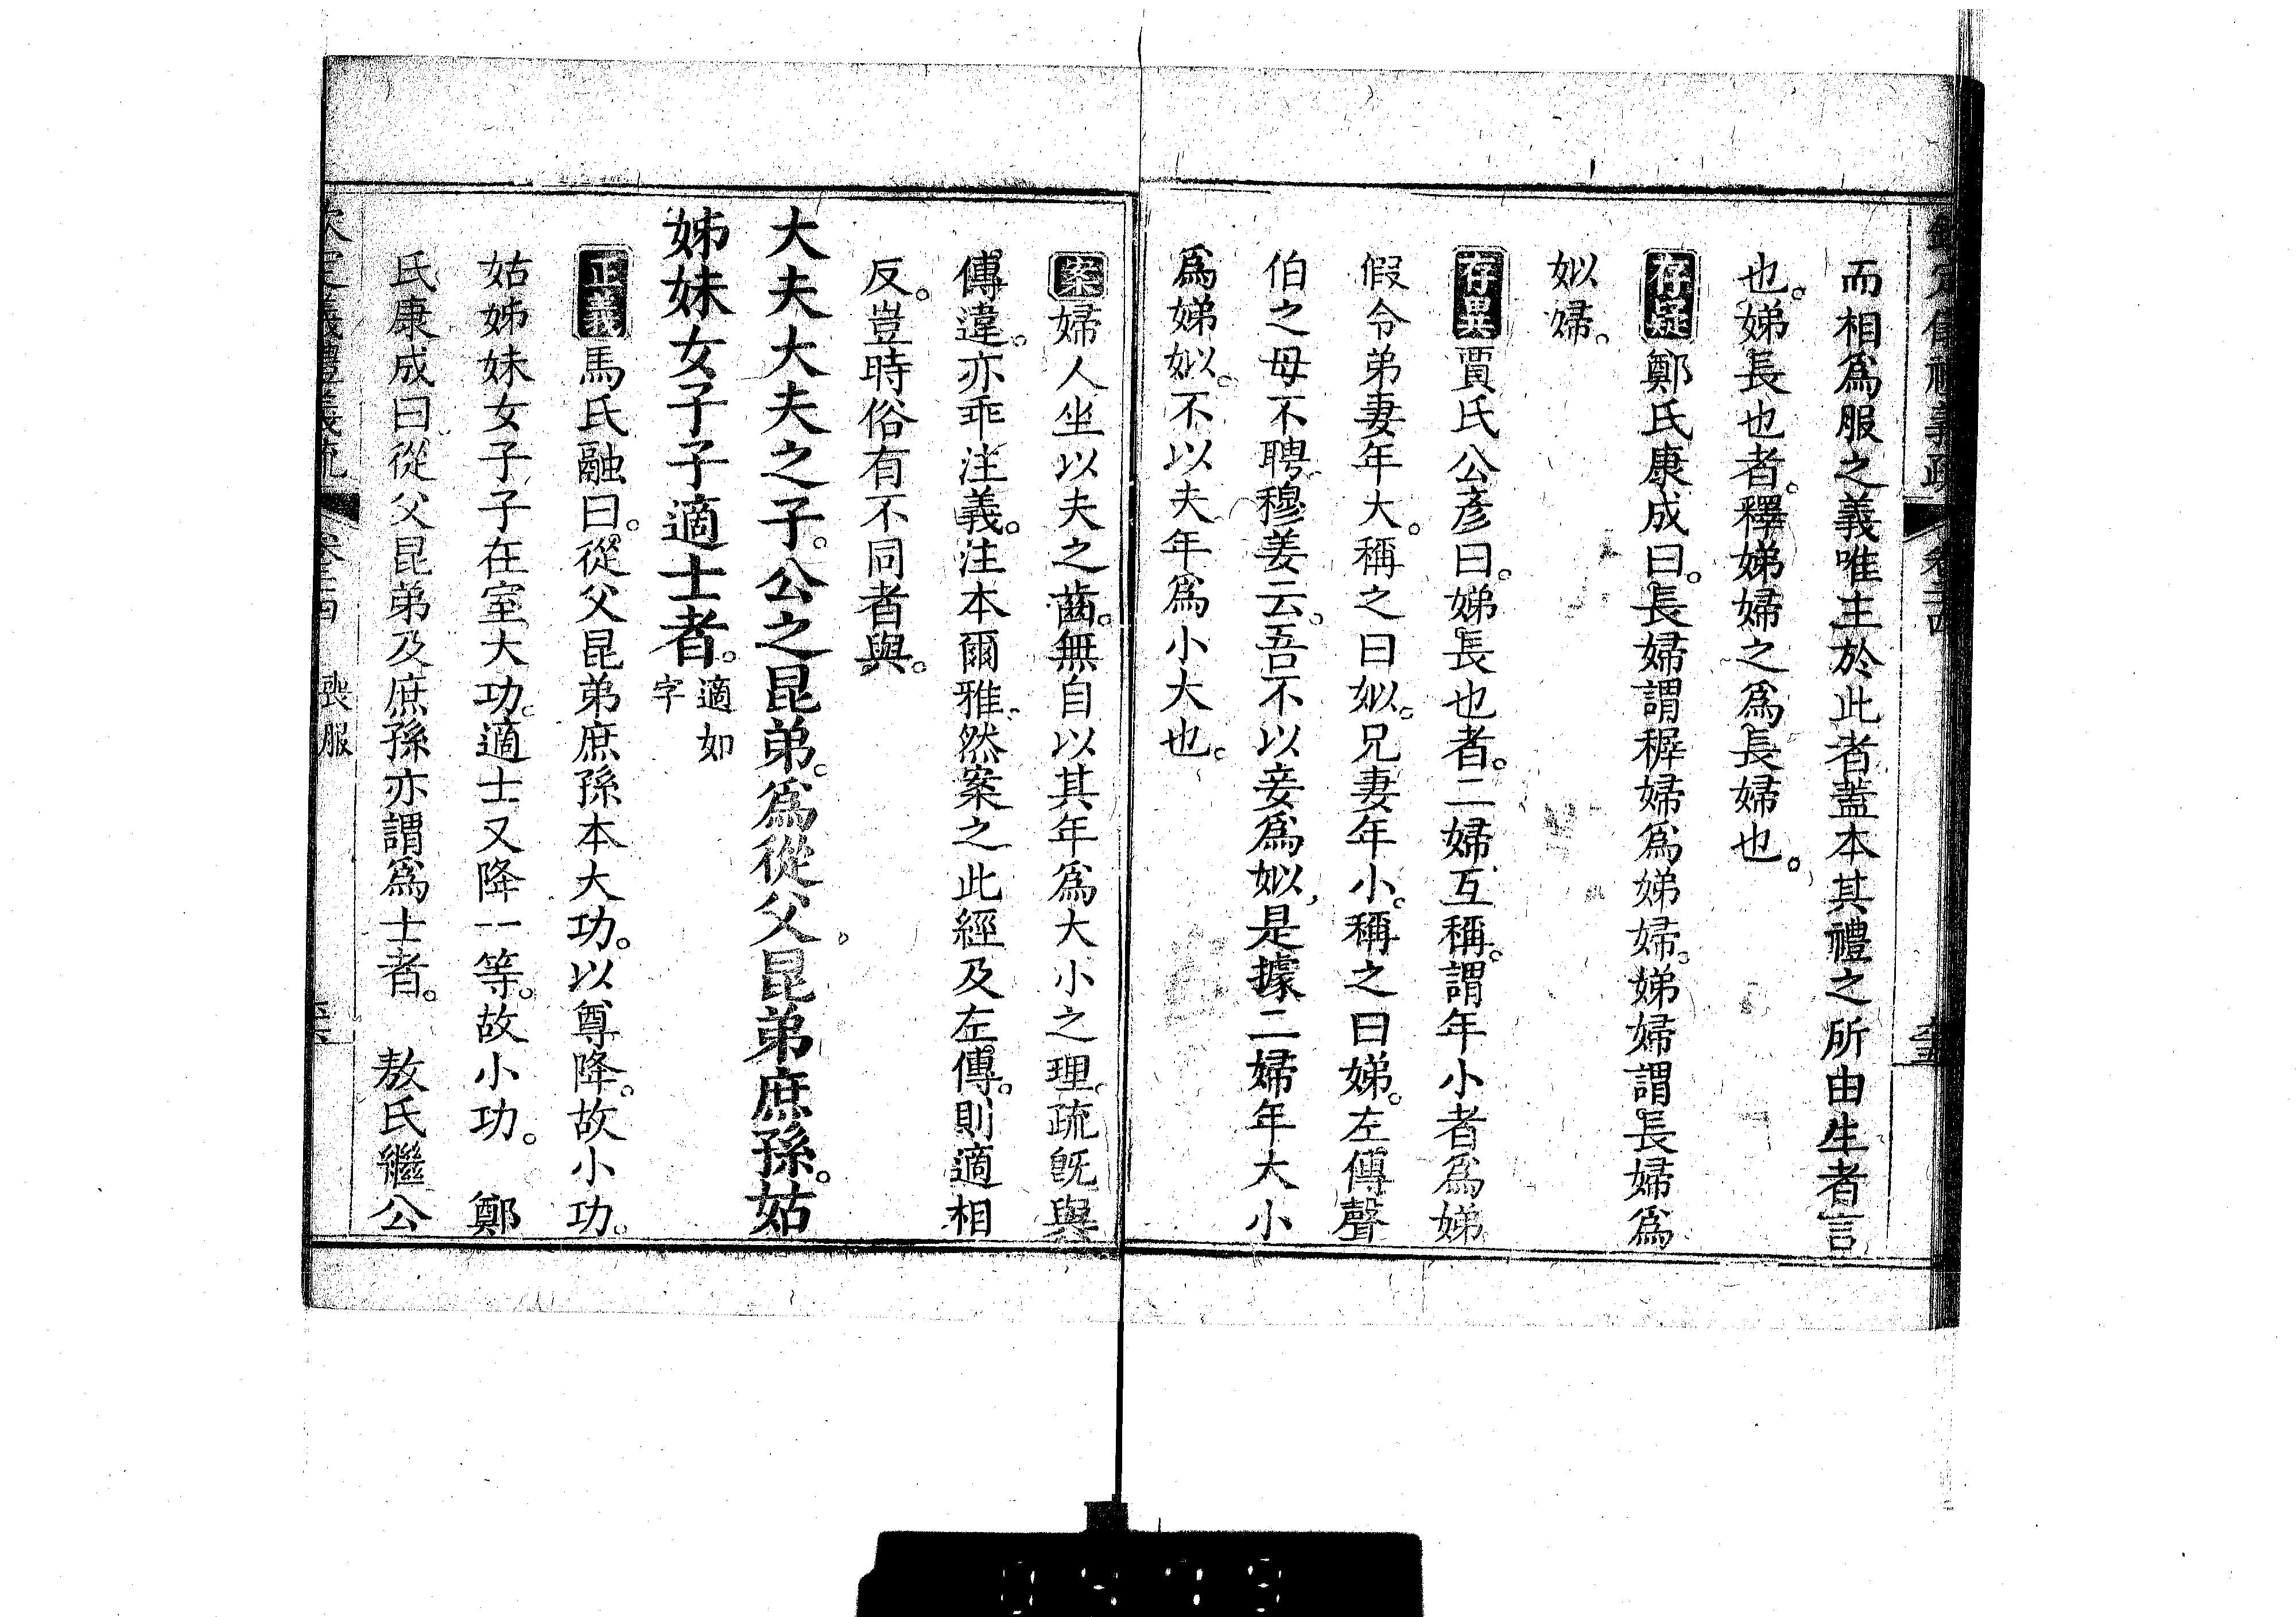 欽定儀禮義疏 卷二十四
而相爲服之義唯主於此者蓋本其禮之所由生者言
也。娣長也者。釋娣婦之爲長婦也。
存疑 鄭氏康成曰。長婦謂穉婦爲娣婦。娣婦謂長婦爲
姒婦。
存異 賈氏公彥曰。娣長也者。二婦互稱。謂年小者爲娣
假令弟妻年大。稱之曰姒。兄妻年小。稱之曰娣。左傳聲
伯之母不聘。穆姜云。吾不以妾爲姒。是據二婦年大小
爲娣姒。不以夫年爲小大也。
案 婦人坐以夫之齒。無自以其年爲大小之理。疏旣與
傳違。亦乖注義。注本爾雅。然案之此經及左傳。則適相
反。豈時俗有不同者與。
大夫大夫之子。公之昆弟。爲從父昆弟庶孫。姑
姊妹女子子適士者。適如字
正義 馬氏融曰。從父昆弟庶孫本大功。以尊降。故小功。
姑姊妹女子子在室大功。適士又降一等。故小功。 鄭
氏康成曰從父昆弟及庶孫亦謂爲士者。 敖氏繼公
欽定儀禮義疏 喪服